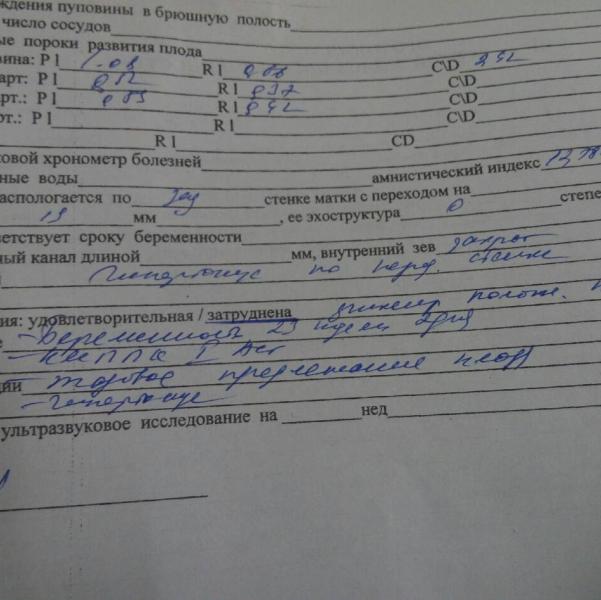 ждения пуповины в брюшную полость
число сосудов
ые пороки развития плода
вина: P l 1.08 R l 0.68 C\D 2.52
арт: P l 0.82 R l 0.37 C\D
арт.: P l 0.83 R l 0.42 C\D
рт.: P l R l C\D
R l CD
ковой хронометр болезней
ные воды амнистический индекс
аспологается по зад стенке матки с переходом на
19 мм , ее эхоструктура 0 степе
ветствует сроку беременности
ный канал длиной мм, внутренний зев закрыт
Гипертонус по перд. стенке
ия: удовлетворительная / затруднена полож.
е - Беременность 23 недели 2 дня
- НМППК I A ст
ции - тазовое предлежание плода
- гипертонус
ультразвуковое исследование на нед